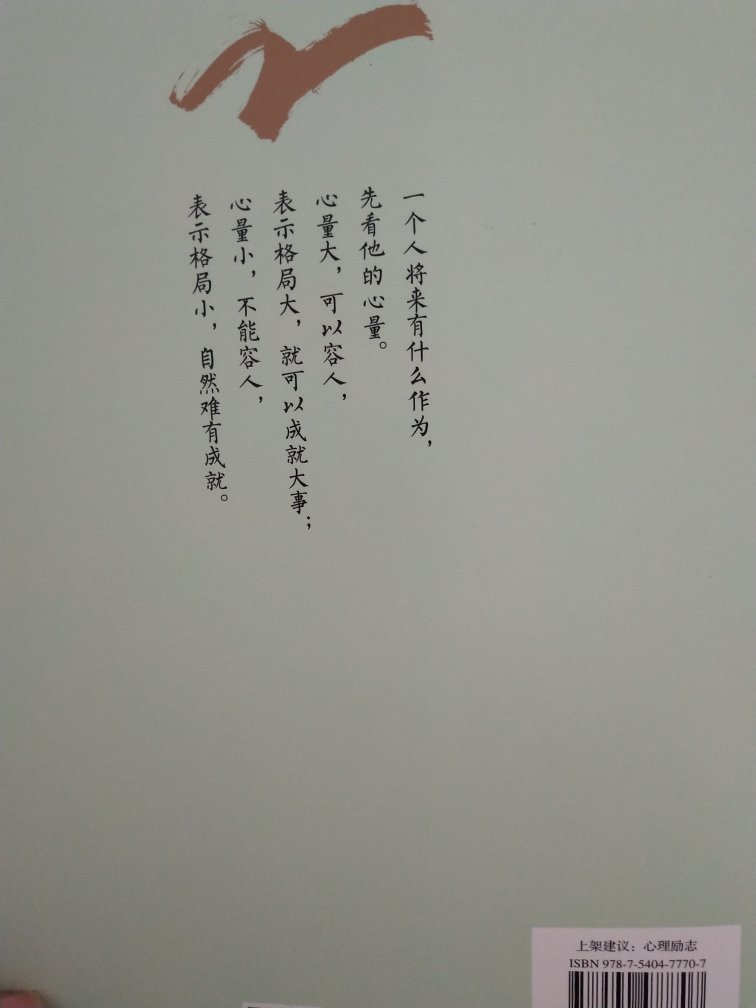 一个人将来有什么作为，
先看他的心量。
心量大，可以容人，
表示格局大，就可以成就大事；
心量小，不能容人，
表示格局小，自然难有成就。
上架建议：心理励志
ISBN 978-7-5404-7770-7